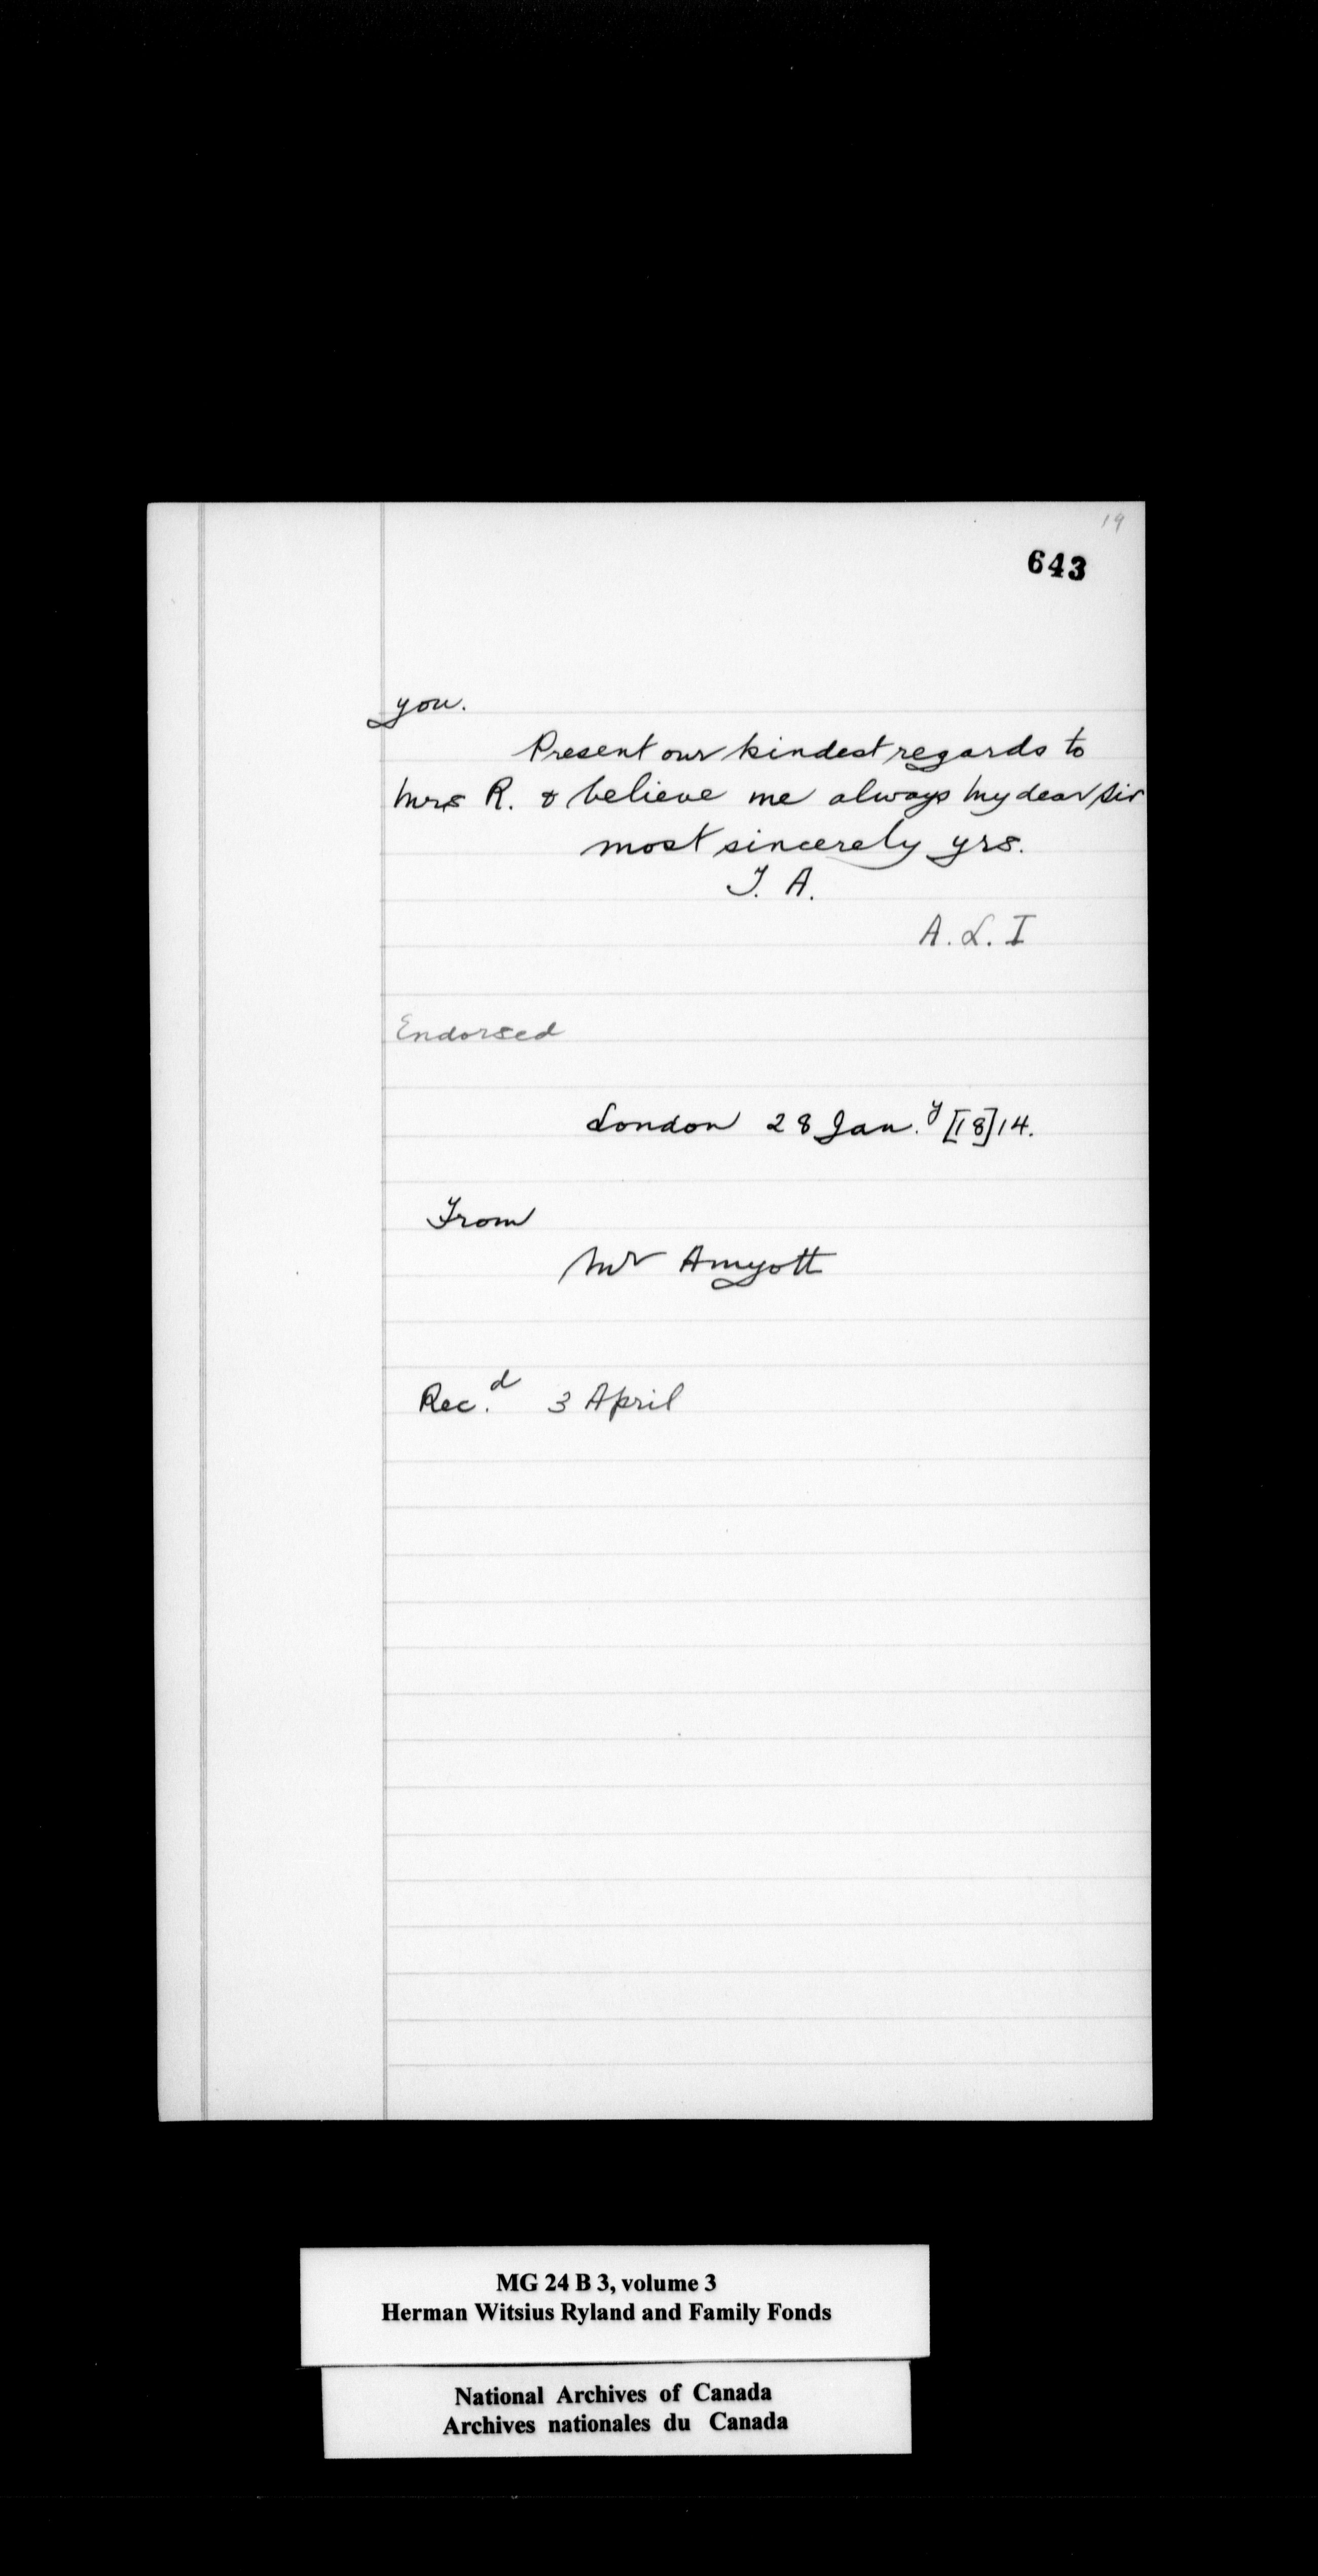 19
643
you.
Present our kindest regards to
Mrs R. & believe me always My dear Sir
most sincerely yrs.
T. A.
A. L. I
Endorsed
London 28 Jan.y [18]14.
From
Mr Amyott
Rec.d 3 April
MG 24 B 3, volume 3
Herman Witsius Ryland and Family Fonds
National Archives of Canada
Archives nationales du Canada